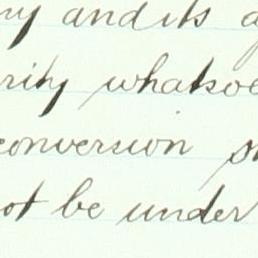 ny and its
rity whatsoe
conversion
not be under